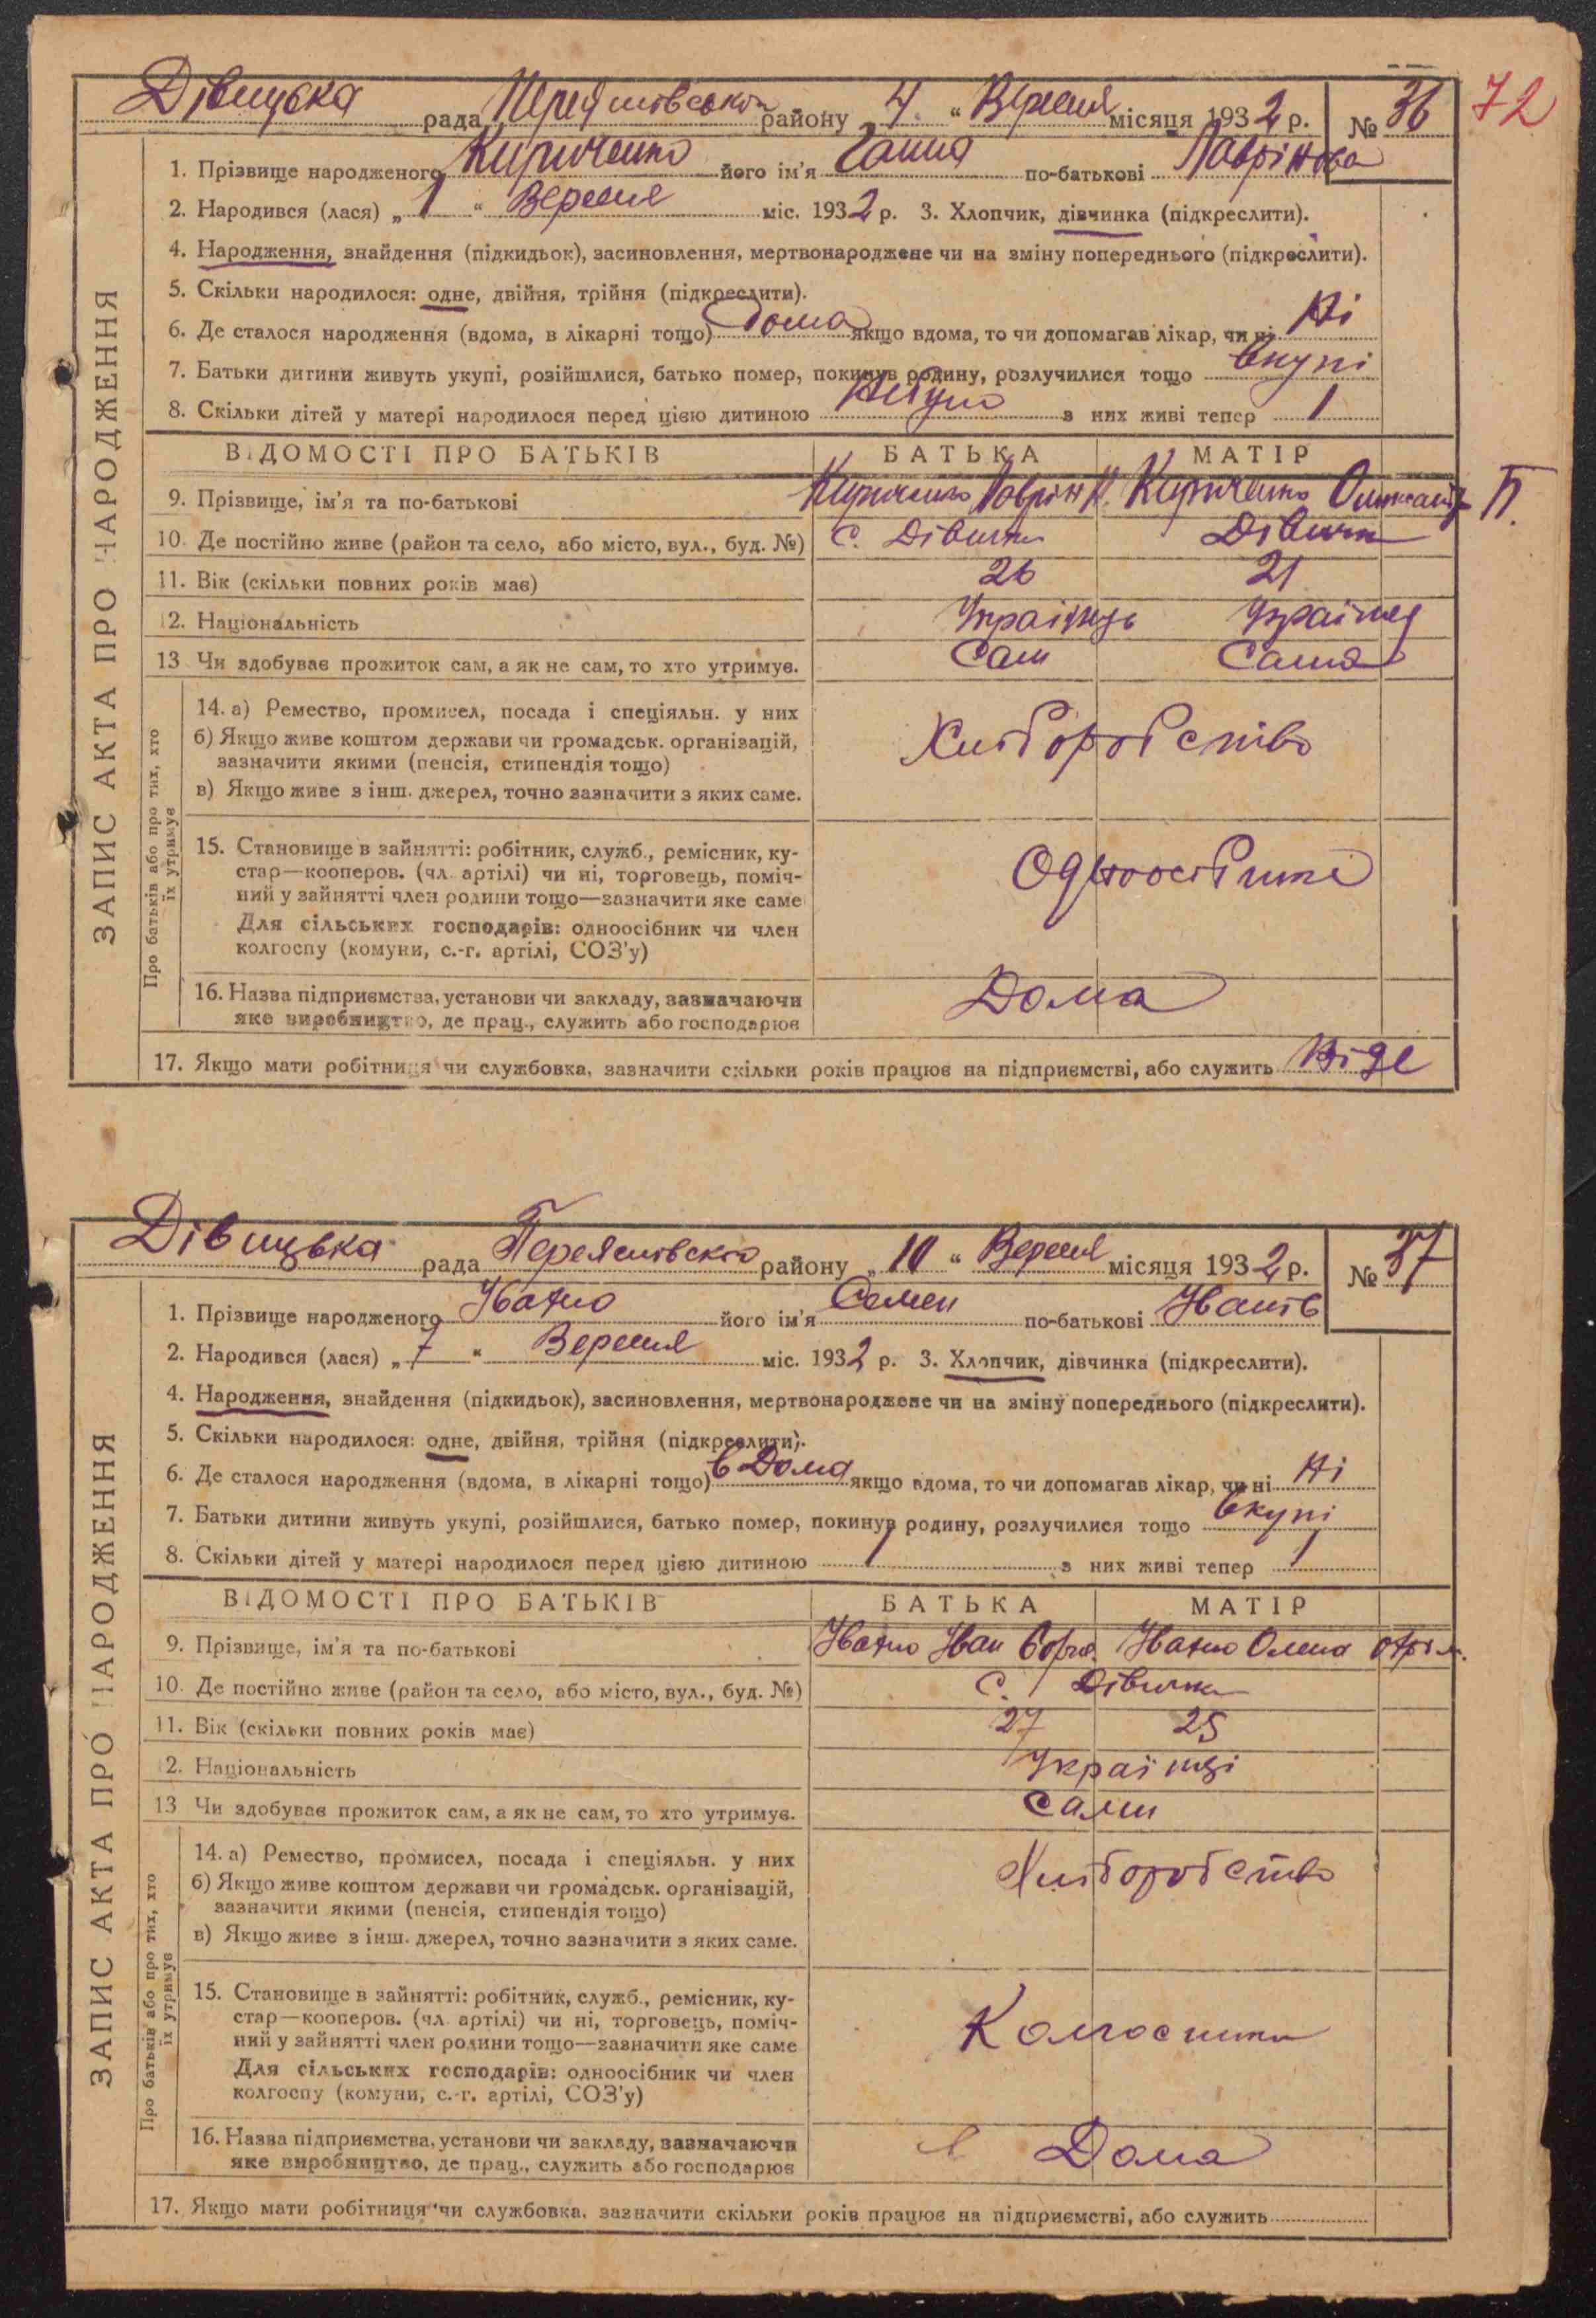 72
Дівицька рада Переяславськ району 4 " Вересня місяця 1932 р. № 36
1. Прізвище народженого Кириченко його ім'я Ганна по-батькові Лаврінова
2. Народився (лася) „ 1 " Вересня міс. 1932 р. 3. Хлопчик, дівчинка (підкреслити).
4. Народження, знайдення (підкидьок), засиновлення, мертвонароджене чи на зміну попереднього (підкреслити).
5. Скільки народилося: одне, двійня, трійня (підкреслити).
6. Де сталося народження (вдома, в лікарні тощо) дома якщо вдома, то чи допомагав лікар, чи ні Ні
7. Батьки дитини живуть укупі, розійшлися, батько помер, покинув родину, розлучилися тощо вкупі
8. Скільки дітей у матері народилося перед цією дитиною Небуло з них живі тепер 1
ВІДОМОСТІ ПРО БАТЬКІВ БАТЬКА МАТІР
9. Прізвище, ім'я та по-батькові Кириченко Лаврін Кириченко П.
10. Де постійно живе (район та село, або місто, вул., буд. №) с. Дівички Дівички
11. Вік (скільки повних років має) 26 21
12. Національність Українць Українц
13 Чи здобуває прожиток сам, а як не сам, то хто утримує. Сам Сама
14. а) Ремество, промисел, посада і спеціяльн. у них
б) Якщо живе коштом держави чи громадськ. організацій,
зазначити якими (пенсія, стипендія тощо)
в) Якщо живе з інш. джерел, точно зазначити з яких саме.
Хліборобство
15. Становище в зайнятті: робітник, служб., ремісник, ку-
стар—кооперов. (чл. артілі) чи ні, торговець, поміч-
ний у зайнятті член родини тощо—зазначити яке саме
Для сільських господарів: одноосібник чи член
колгоспу (комуни, с.-г. артілі, СОЗ'у)
Одноосібники
16. Назва підприємства, установи чи закладу, зазначаючи
яке виробництво, де прац., служить або господарює
Дома
17. Якщо мати робітниця чи службовка, зазначити скільки років працює на підприємстві, або служить Ніде
ЗАПИС АКТА ПРО НАРОДЖЕННЯ
Про батьків або про тих, хто
їх утримує
Дівицька рада Переяславсько району „ 10 " Вересня місяця 1932 р. № 37
1. Прізвище народженого Івахно його ім'я Семен по-батькові Іванів
2. Народився (лася) „ 7 " Вересня міс. 1932 р. 3. Хлопчик, дівчинка (підкреслити).
4. Народження, знайдення (підкидьок), засиновлення, мертвонароджене чи на зміну попереднього (підкреслити).
5. Скільки народилося: одне, двійня, трійня (підкреслити).
6. Де сталося народження (вдома, в лікарні тощо) в Дома якщо вдома, то чи допомагав лікар, чи ні Ні
7. Батьки дитини живуть укупі, розійшлися, батько помер, покинув родину, розлучилися тощо вкупі
8. Скільки дітей у матері народилося перед цією дитиною 1 з них живі тепер 1
ВІДОМОСТІ ПРО БАТЬКІВ БАТЬКА МАТІР
9. Прізвище, ім'я та по-батькові Івахно Іван Івахно Олена
10. Де постійно живе (район та село, або місто, вул., буд. №) с. Дівички
11. Вік (скільки повних років має) 27 25
12. Національність Українці
13 Чи здобуває прожиток сам, а як не сам, то хто утримує. сами
14. а) Ремество, промисел, посада і спеціяльн. у них
б) Якщо живе коштом держави чи громадськ. організацій,
зазначити якими (пенсія, стипендія тощо)
в) Якщо живе з інш. джерел, точно зазначити з яких саме.
Хліборобство
15. Становище в зайнятті: робітник, служб., ремісник, ку-
стар—кооперов. (чл. артілі) чи ні, торговець, поміч-
ний у зайнятті член родини тощо—зазначити яке саме
Для сільських господарів: одноосібник чи член
колгоспу (комуни, с.-г. артілі, СОЗ'у)
Колгоспники
16. Назва підприємства, установи чи закладу, зазначаючи
яке виробництво, де прац., служить або господарює
в Дома
17. Якщо мати робітниця чи службовка, зазначити скільки років працює на підприємстві, або служить
ЗАПИС АКТА ПРО НАРОДЖЕННЯ
Про батьків або про тих, хто
їх утримує